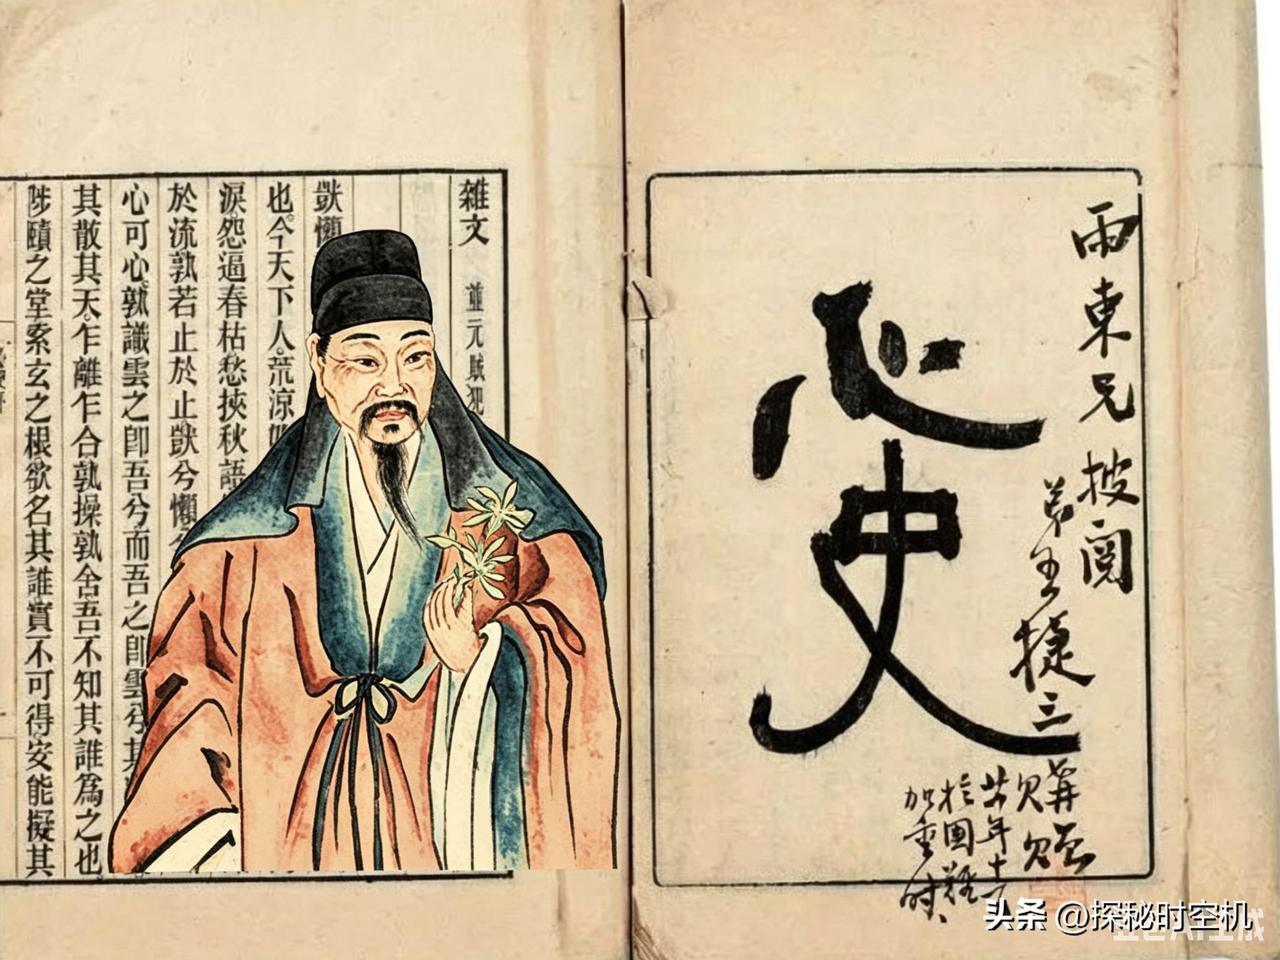 心史
雨東兄披閱
弟王捷三
雜文
並元賊犯
獃懶
也。今天下人。荒涼
淚怨逼春枯愁挾秋語
於流孰若止於止獃兮懶
心可心。孰讖雲之卽吾兮而吾之卽雲兮其
其散其天。乍離乍合孰操孰舍吾不知其誰為之也
陟賾之堂索玄之根欲名其誰實不可得安能擬其
头条 @探秘时空机